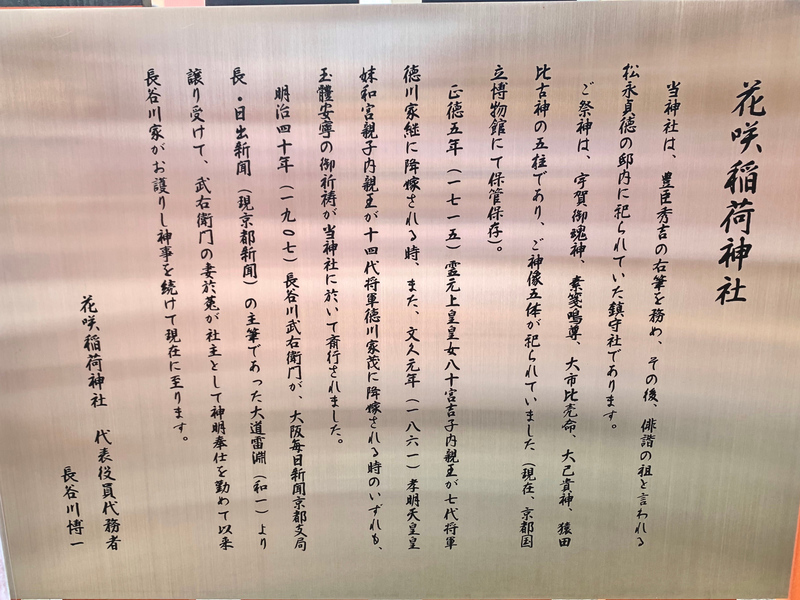 花咲稲荷神社
当神社は、豊臣秀吉の右筆を務め、その後、俳諧の祖と言われる
松永貞徳の邸内に祀られていた鎮守社であります。
ご祭神は、宇賀御魂神、素箋嗚尊、大市比売命、大己貴神、猿田
比古神の五柱であり、ご神像五体が祀られていました（現在、京都国
立博物館にて保管保存）。
正徳五年（一七一五）霊元上皇皇女八十宮吉子内親王が七代将軍
徳川家継に降嫁される時、また、文久元年（一八六一）孝明天皇皇
妹和宮親子内親王が十四代将軍徳川家茂に降嫁される時のいずれも、
玉體安寧の御祈祷が当神社に於いて斎行されました。
明治四十年（一九〇七）長谷川武右衛門が、大阪毎日新聞京都支局
長・日出新聞（現京都新聞）の主筆であった大道雷淵（和一）より
譲り受けて、武右衛門の妻於菟が社主として神明奉仕を勤めて以来
長谷川家がお護りし神事を続けて現在に至ります。
花咲稲荷神社　代表役員代務者
長谷川博一